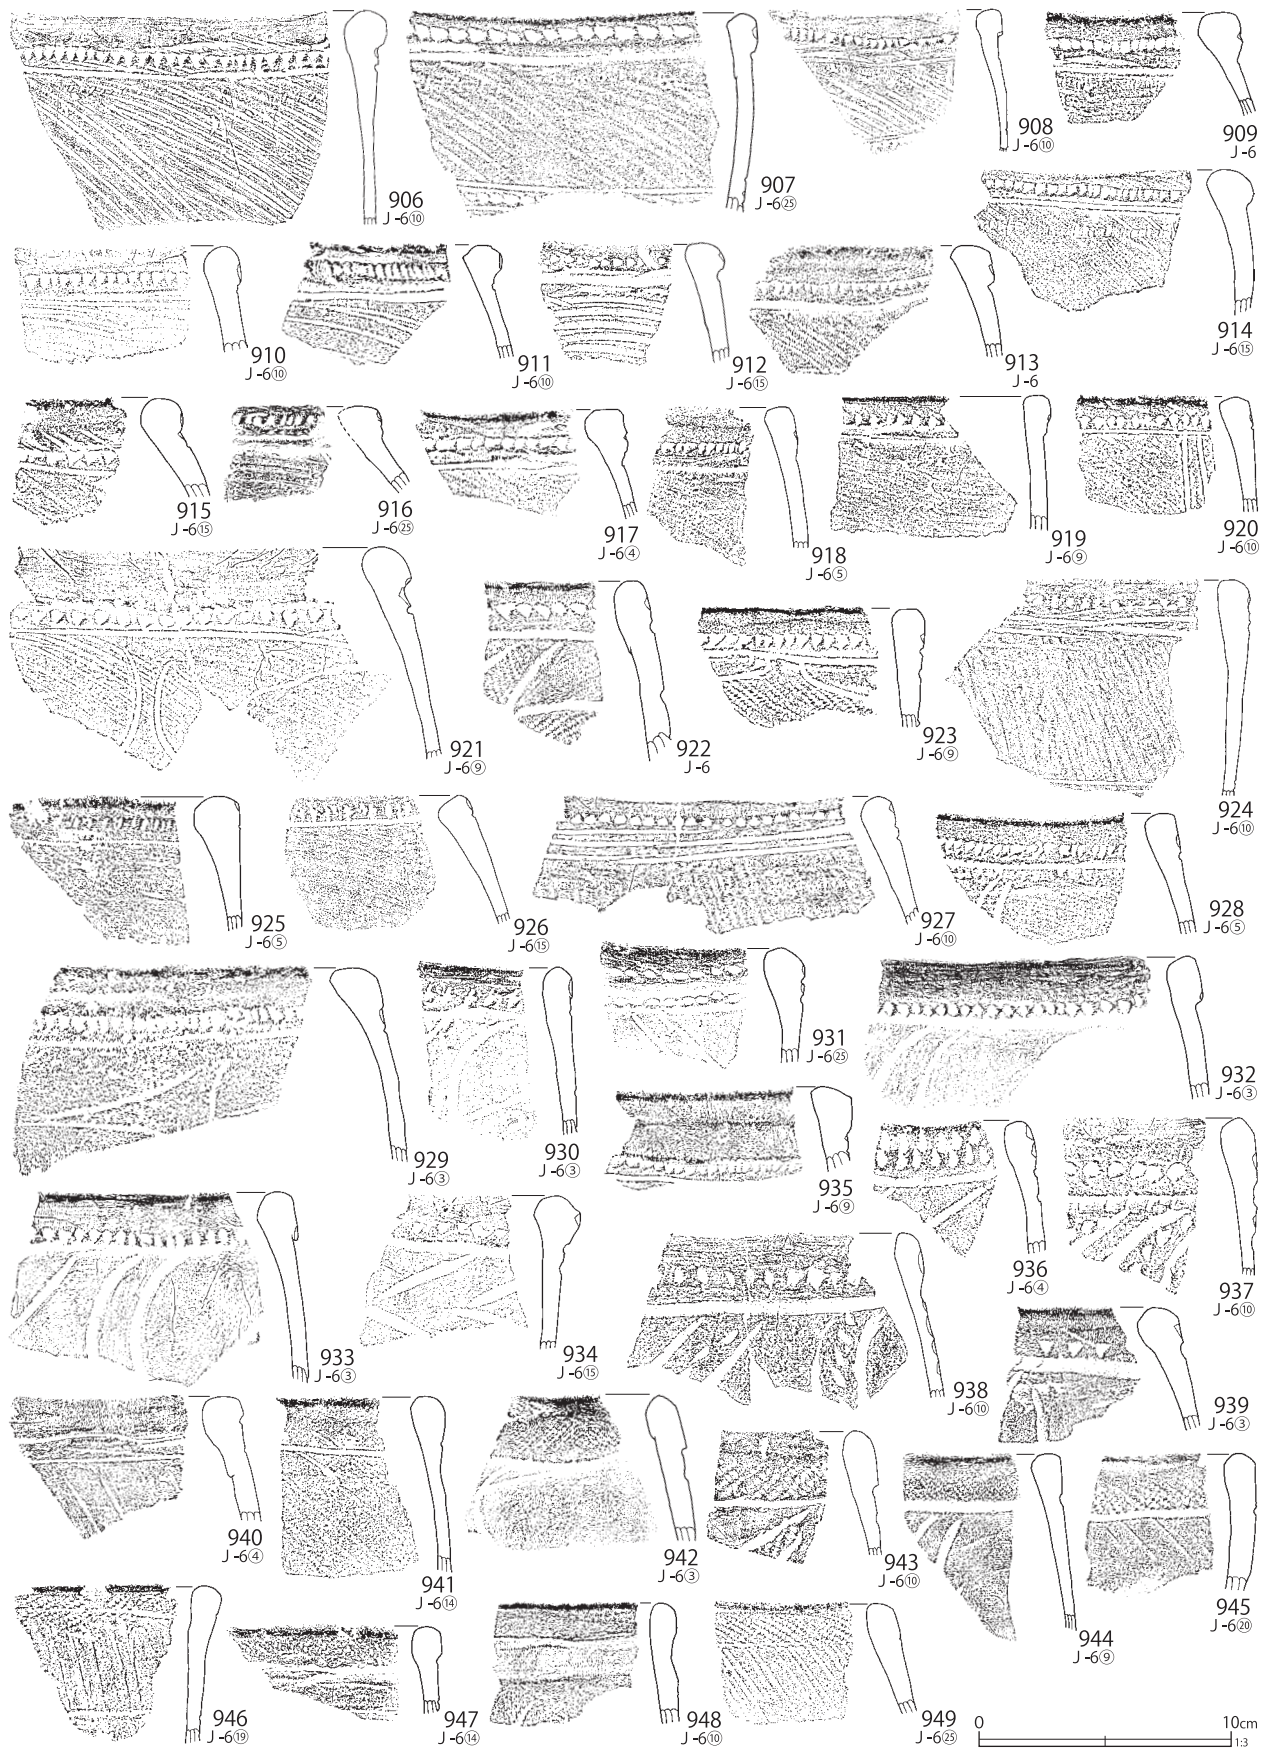 906
J-6⑩
907
J-6㉕
908
J-6⑩
909
J-6
910
J-6⑩
911
J-6⑩
912
J-6⑮
913
J-6
914
J-6⑮
915
J-6⑮
916
J-6㉕
917
J-6④
918
J-6⑤
919
J-6⑨
920
J-6⑩
921
J-6⑨
922
J-6
923
J-6⑨
924
J-6⑩
925
J-6⑤
926
J-6⑮
927
J-6⑩
928
J-6⑤
929
J-6③
930
J-6③
931
J-6㉕
932
J-6③
933
J-6③
934
J-6⑮
935
J-6⑨
936
J-6④
937
J-6⑩
938
J-6⑩
939
J-6③
940
J-6④
941
J-6⑭
942
J-6③
943
J-6⑩
944
J-6⑨
945
J-6⑳
946
J-6⑲
947
J-6⑭
948
J-6⑩
949
J-6㉕
0 10cm
1:3